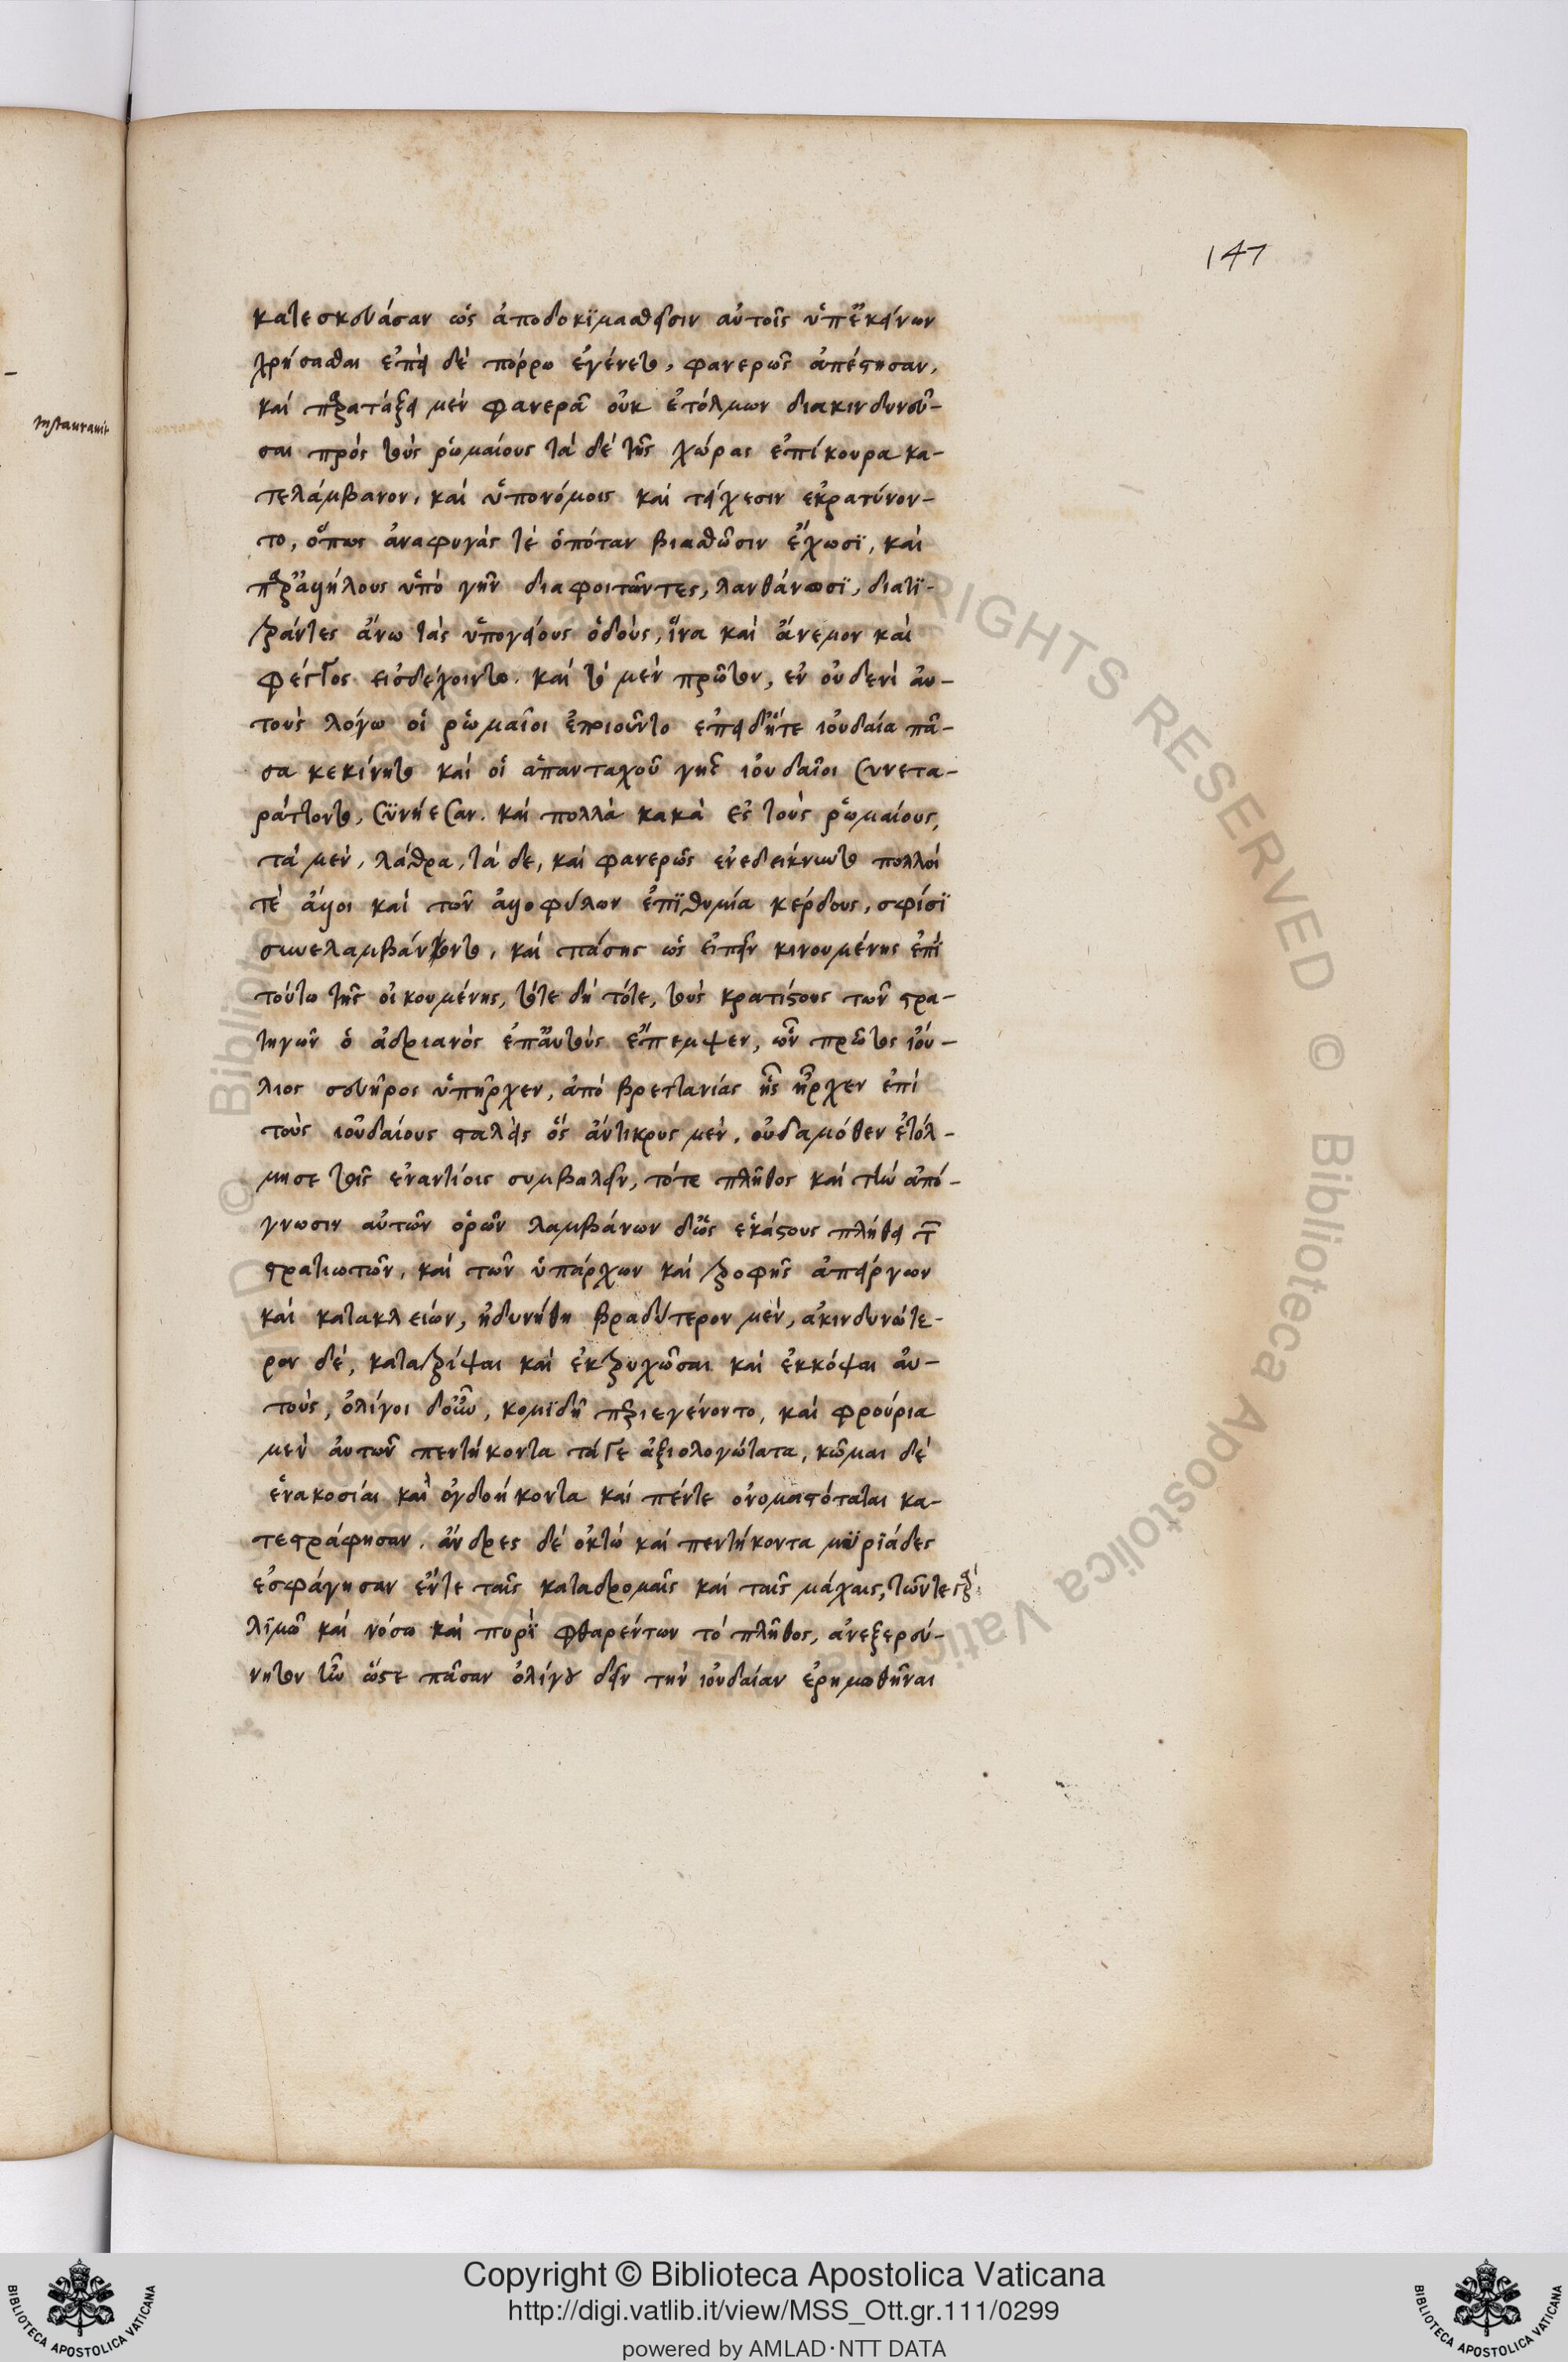 147
Instauravit
κατεσκεύασαν ὡς ἀποδοκιμασθεῖσιν αὐτοῖς ὑπ' ἐκείνων
χρήσασθαι ἐπεὶ δὲ πόρρω ἐγένετο, φανερῶς ἀπέστησαν,
καὶ παρατάξει μὲν φανερᾶ οὐκ ἐτόλμων διακινδυνεῦ-
σαι πρὸς τοὺς ῥωμαίους τὰ δὲ τῆς χώρας ἐπίκουρα κα-
τελάμβανον, καὶ ὑπονόμοις καὶ τείχεσιν ἐκρατύνον-
το, ὅπως ἀναφυγάς τὲ ὁπόταν βιασθῶσιν ἔχωσι, καὶ
παρ' ἀλλήλους ὑπὸ γῆν διαφοιτῶντες, λανθάνωσι, διατι-
τράντες ἄνω τὰς ὑπογείους ὁδοὺς, ἵνα καὶ ἄνεμον καὶ
φέγγος εἰσδέχοιντο. καὶ τὸ μὲν πρῶτον, ἐν οὐδενὶ αὐ-
τοὺς λόγω οἱ ῥωμαῖοι ἐποιοῦντο ἐπεὶ δ' ἥτε ἰουδαία πᾶ-
σα κεκίνητο καὶ οἱ ἁπανταχοῦ γῆς ἰουδαῖοι συνετα-
ράττοντο, συνήεσαν. καὶ πολλὰ κακὰ ἐς τοὺς ῥωμαίους,
τὰ μὲν, λάθρα, τὰ δε, καὶ φανερῶς ἐνεδείκνυντο πολλοί
τὲ ἄλλοι καὶ τῶν ἀλλοφύλων ἐπιθυμία κέρδους, σφίσι
συνελαμβάνοντο, καὶ πάσης ὡς εἰπεῖν κινουμένης ἐπὶ
τούτω τῆς οἰκουμένης, τότε δὴ τότε, τοὺς κρατίστους τῶν στρα-
τηγῶν ὁ ἀδριανὸς ἐπ' αὐτοὺς ἔπεμψεν, ὧν πρῶτος ἰού-
λιος σευῆρος ὑπῆρχεν, ἀπὸ βρεττανίας ἧς ἦρχεν ἐπὶ
τοὺς ἰουδαίους σταλεὶς ὃς ἄντικρυς μὲν, οὐδαμόθεν ἐτόλ-
μησε τοῖς ἐναντίοις συμβαλεῖν, τότε πλῆθος καὶ τὴν ἀπό-
γνωσιν αὐτῶν ὁρῶν λαμβάνων δ' ὡς ἑκάστους πλήθει τῶν
στρατιωτῶν, καὶ τῶν ὑπάρχων καὶ τροφῆς ἀπείργων
καὶ κατακλείων, ἠδυνήθη βραδύτερον μὲν, ἀκινδυνότε-
ρον δὲ, κατατρίψαι καὶ ἐκτρυχῶσαι καὶ ἐκκόψαι αὐ-
τοὺς, ὀλίγοι δ' οὖν, κομιδῆ περιεγένοντο, καὶ φρούρια
μὲν αὐτῶν πεντήκοντα τάγε ἀξιολογώτατα, κῶμαι δὲ
ἐνακοσίαι καὶ ὀγδοήκοντα καὶ πέντε ὀνομαστόταται κα-
τεστράφησαν. ἄνδρες δὲ ὀκτὼ καὶ πεντήκοντα μυριάδες
ἐσφάγησαν ἔντε ταῖς καταδρομαῖς καὶ ταῖς μάχαις, τῶντε γὰρ
λιμῶ καὶ νόσω καὶ πυρὶ φθαρέντων τὸ πλῆθος, ἀνεξερεύ-
νητον ἦν ὥστε πᾶσαν ὀλίγου δεῖν τὴν ἰουδαίαν ἐρημωθῆναι
© Biblioteca Apostolica Vaticana
ALL RIGHTS RESERVED
Copyright © Biblioteca Apostolica Vaticana
http://digi.vatlib.it/view/MSS_Ott.gr.111/0299
powered by AMLAD·NTT DATA
BIBLIOTECA APOSTOLICA VATICANA
BIBLIOTECA APOSTOLICA VATICANA